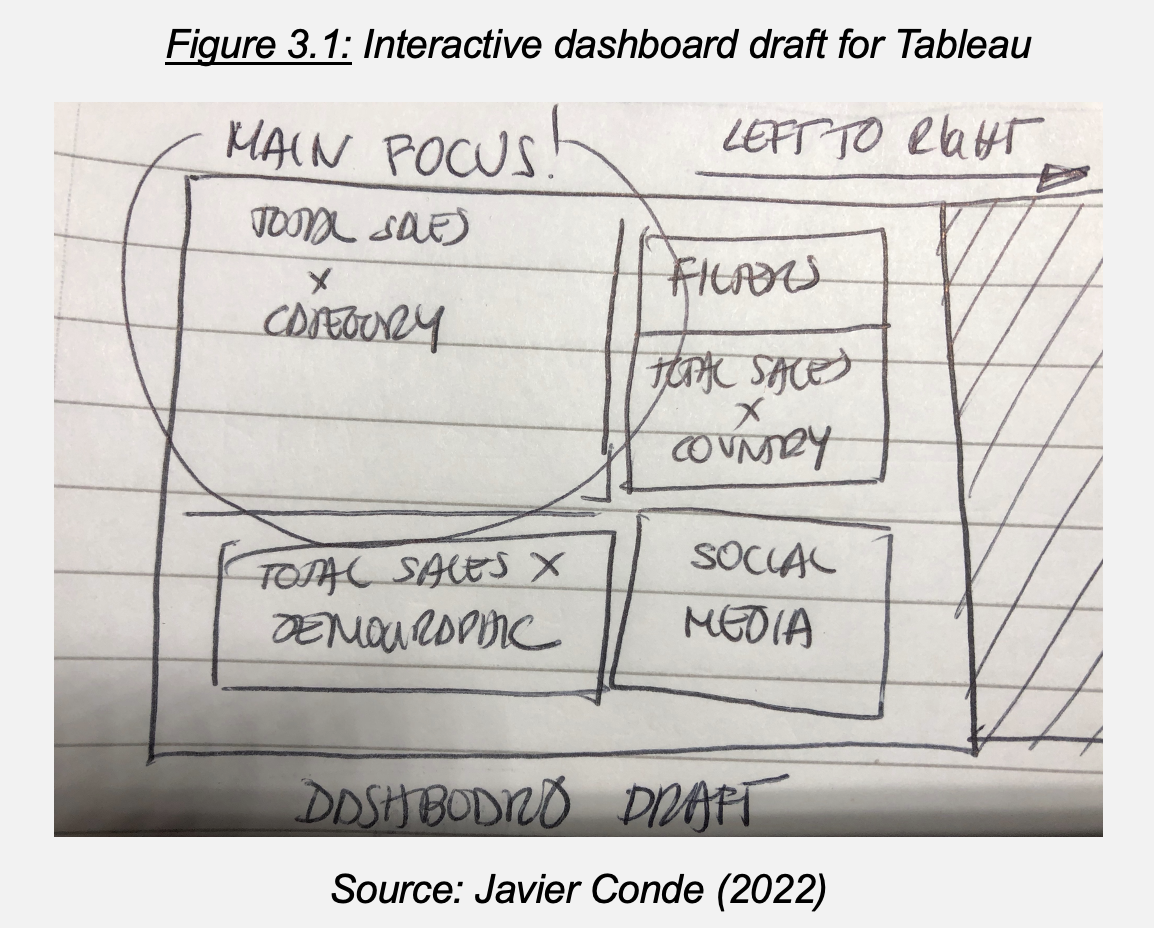 Figure 3.1: Interactive dashboard draft for Tableau
MAIN FOCUS!
LEFT TO RIGHT
TOTAL SALES
X
CATEGORY
FILTERS
TOTAL SALES
X
COUNTRY
TOTAL SALES X
DEMOGRAPHIC
SOCIAL
MEDIA
DASHBOARD DRAFT
Source: Javier Conde (2022)